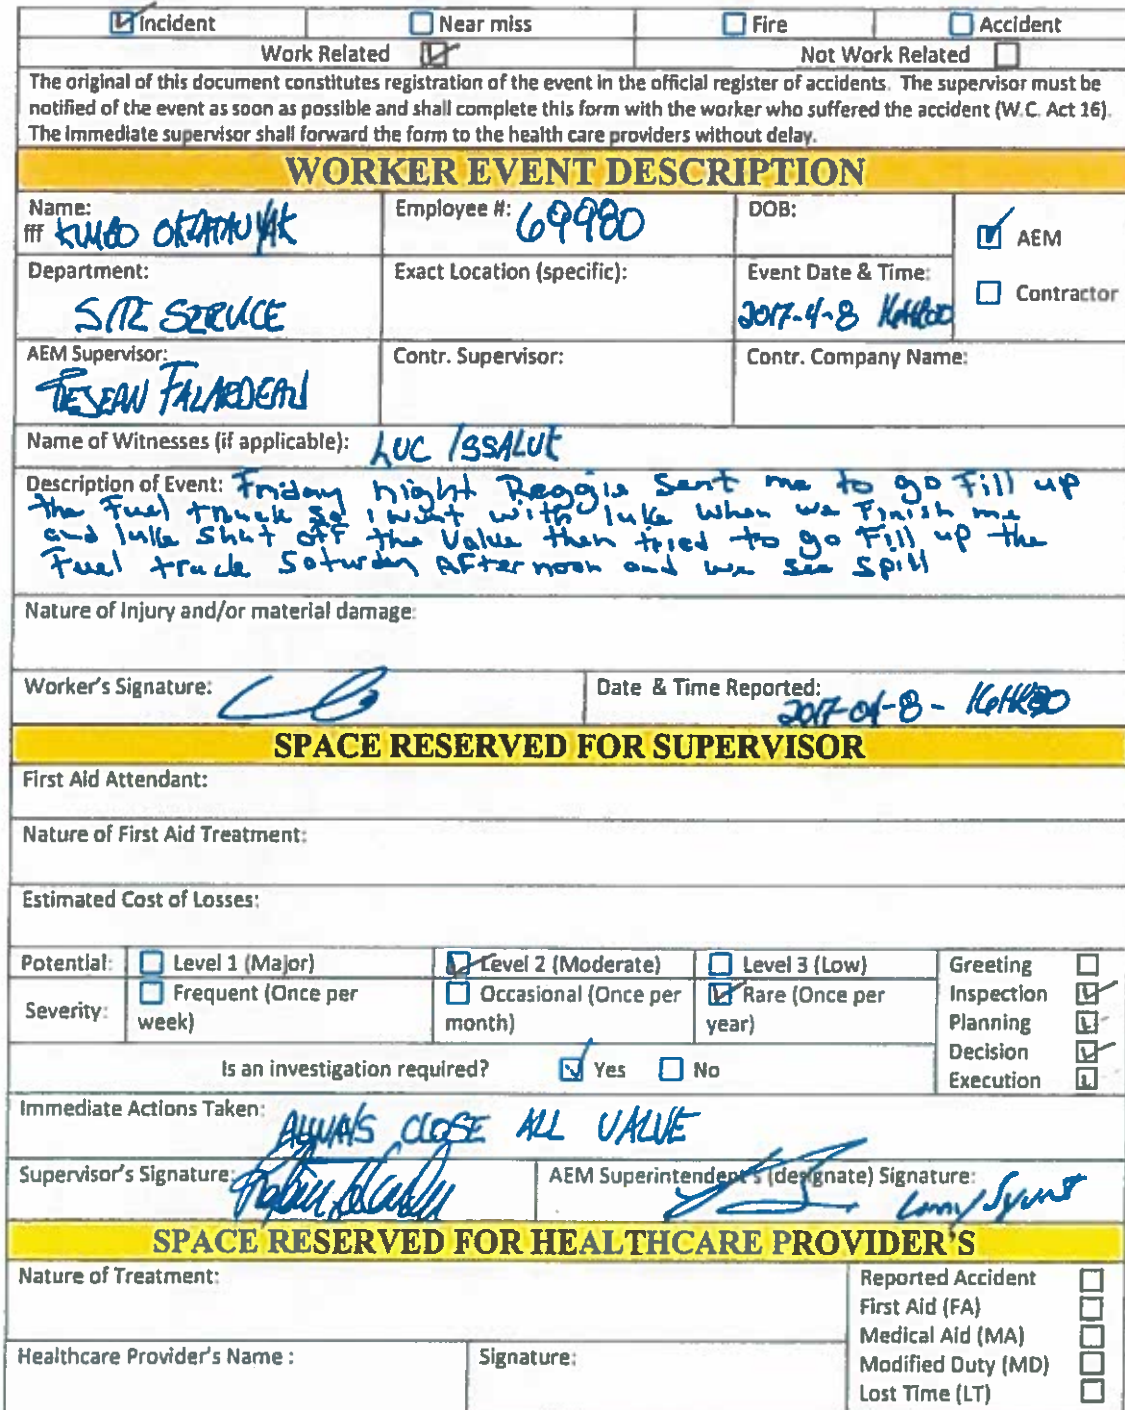 Incident Near miss Fire Accident
Work Related Not Work Related
The original of this document constitutes registration of the event in the official register of accidents. The supervisor must be
notified of the event as soon as possible and shall complete this form with the worker who suffered the accident (W.C. Act 16).
The immediate supervisor shall forward the form to the health care providers without delay.
WORKER EVENT DESCRIPTION
Name: Employee #: 69980 DOB:
fff AEM
Department: Exact Location (specific): Event Date & Time:
SITE SERVICE 2017-4-8 Contractor
AEM Supervisor: Contr. Supervisor: Contr. Company Name:
FALARDEAU
Name of Witnesses (if applicable): LUC ISSALUK
Description of Event: Friday night Reggie Sent me to go Fill up
the Fuel truck so i went with luke when we Finish me
and luke shut off the Value then tried to go Fill up the
Fuel truck Saturday AFternoon and we see spill
Nature of Injury and/or material damage:
Worker's Signature: Date & Time Reported:
2017-04-8 -
SPACE RESERVED FOR SUPERVISOR
First Aid Attendant:
Nature of First Aid Treatment:
Estimated Cost of Losses:
Potential: Level 1 (Major) Level 2 (Moderate) Level 3 (Low) Greeting
Severity: Frequent (Once per Occasional (Once per Rare (Once per Inspection
week) month) year) Planning
Decision
Is an investigation required? Yes No
Execution
Immediate Actions Taken: ALWAYS CLOSE ALL VALVE
Supervisor's Signature: AEM Superintendent's (designate) Signature:
SPACE RESERVED FOR HEALTHCARE PROVIDER'S
Nature of Treatment: Reported Accident
First Aid (FA)
Medical Aid (MA)
Healthcare Provider's Name : Signature: Modified Duty (MD)
Lost Time (LT)